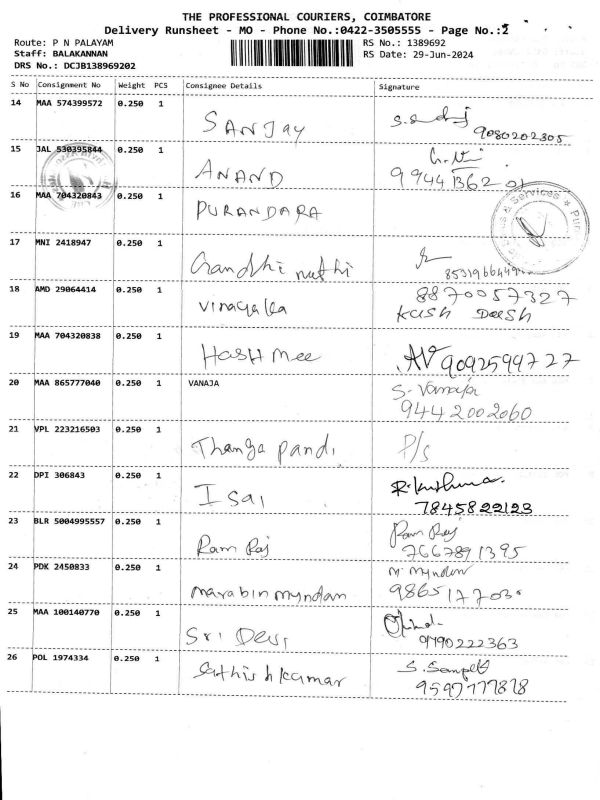 THE PROFESSIONAL COURIERS, COIMBATORE
Delivery Runsheet - MO - Phone No.:0422-3505555 - Page No.:2
Route: P N PALAYAM
RS No.: 1389692
Staff: BALAKANNAN
RS Date: 29-Jun-2024
DRS No.: DCJB138969202
S No Consignment No Weight PCS Consignee Details Signature
14 MAA 574399572 0.250 1
SANJAY
9080202305
15 JAL 530395844 0.250 1
ANAND
16 MAA 704320843 0.250 1
PURANDARA
& Services
17 MNI 2418947 0.250 1
Gandhi nathi
18 AMD 29064414 0.250 1 8870057327
vinayaka
19 MAA 704320838 0.250 1
HASHmee 9092599727
20 MAA 865777040 0.250 1 VANAJA S. Vanaja
9442002060
21 VPL 223216503 0.250 1
Thanga pandi P/S
22 DPI 306843 0.250 1
Isai
7845822123
23 BLR 5004995557 0.250 1 Ram Raj
Ram Raj 7667891395
24 PDK 2450833 0.250 1
marabin myndam
25 MAA 100140770 0.250 1
Sri Devi 9790222363
26 POL 1974334 0.250 1
Sathishkumar 9597777878